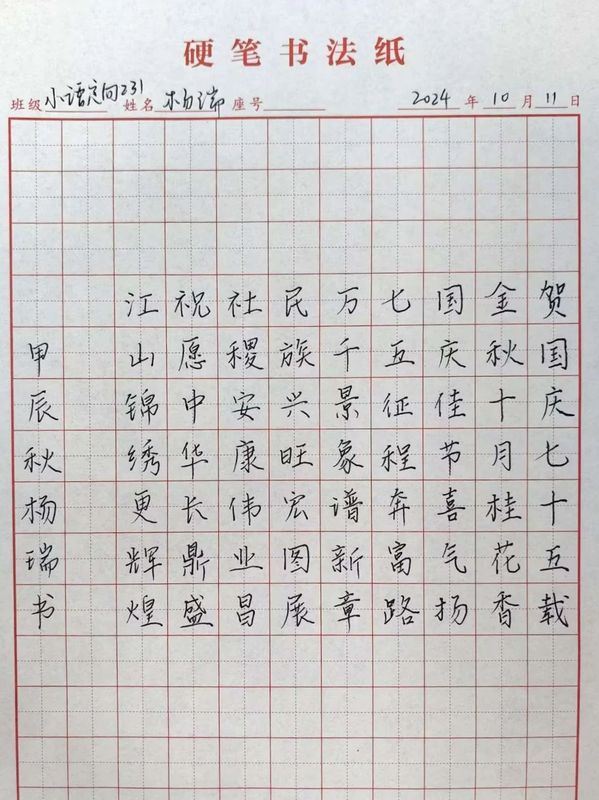 硬笔书法纸
班级 小语定向231 姓名 杨瑞 座号 2024 年 10 月 11 日
贺国庆七十五载
金秋十月桂花香
国庆佳节喜气扬
七五征程奔富路
万千景象谱新章
民族兴旺宏图展
社稷安康伟业昌
祝愿中华长鼎盛
江山锦绣更辉煌
甲辰秋杨瑞书